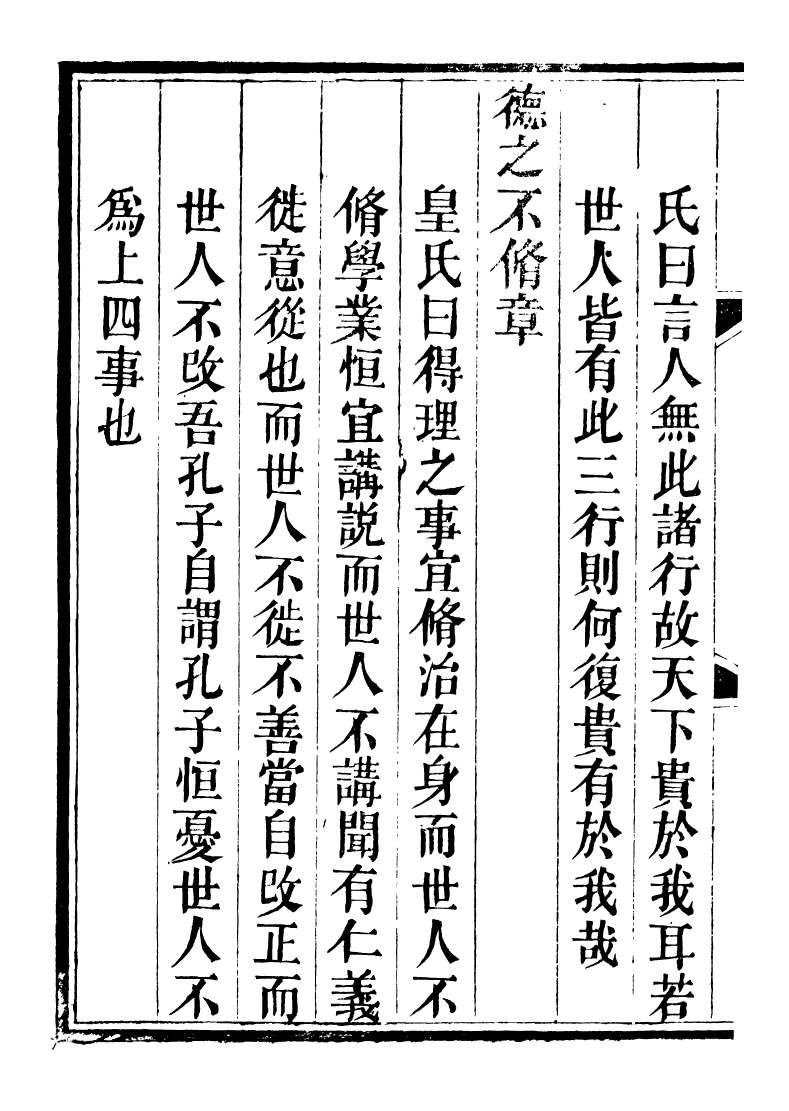 氏曰言人無此諸行故天下貴於我耳若
世人皆有此三行則何復貴有於我哉
德之不脩章
皇氏曰得理之事宜脩治在身而世人不
脩學業恒宜講説而世人不講聞有仁義
徙意從也而世人不徙不善當自改正而
世人不改吾孔子自謂孔子恒憂世人不
爲上四事也